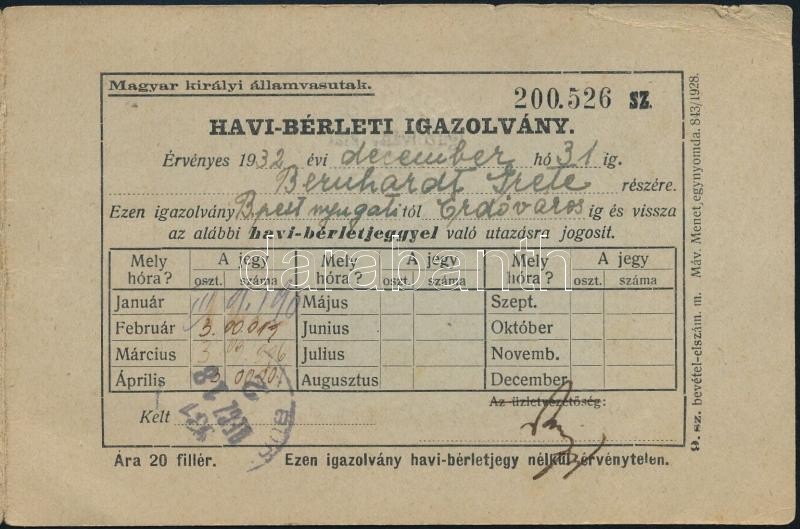 Magyar királyi államvasutak.
200.526 SZ.
HAVI-BÉRLETI IGAZOLVÁNY.
Érvényes 1932 évi december hó 31 ig.
Bernhardt Grete részére.
Ezen igazolvány Bpest nyugati tól Erdőváros ig és vissza
az alábbi havi-bérletjeggyel való utazásra jogosít.
Mely hóra? A jegy oszt. száma Mely hóra? A jegy oszt. száma Mely hóra? A jegy oszt. száma
Január Május Szept.
Február 3. 00.019 Junius Október
Március 3 Julius Novemb.
Április Augusztus December
Az üzletvezetőség:
Kelt
Ára 20 fillér. Ezen igazolvány havi-bérletjegy nélkül érvénytelen.
9. sz. bevétel-elszám. m. Máv. Menetjegynyomda. 843/1928.
databanth